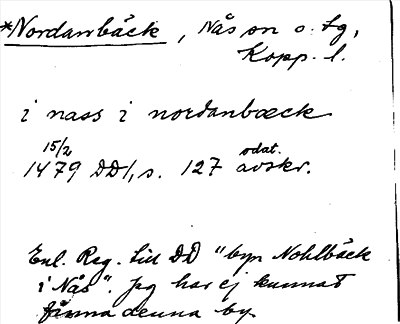 *Nordanbäck, Nås sn o. tg,
Kopp. l.
i nass i nordanbæck
15/2 odat.
1479 DD1, s. 127 avskr.
Enl. Reg. till DD "byn Nohlbäck
i Nås". Jag har ej kunnat
finna denna by